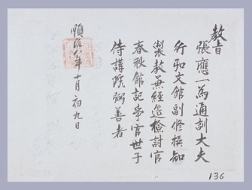 教旨
張應一爲通訓大夫
行弘文館副修撰知
製教兼經筵檢討官
春秋館記事官世子
侍講院弼善者
順治八年十月初九日
136